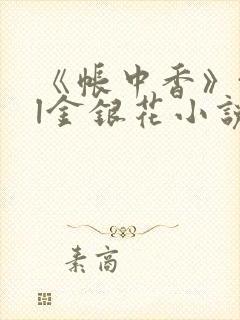 《帐中香》
|金银花小说
素高